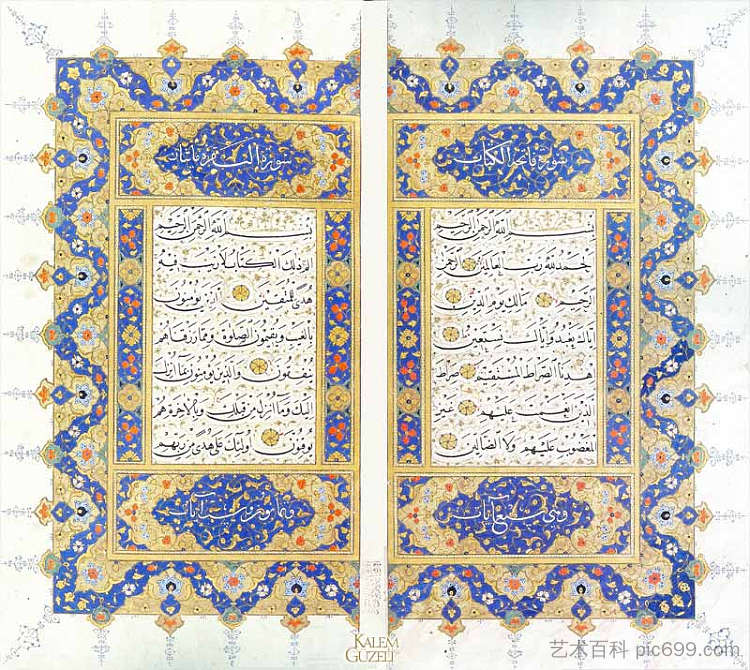 سورة فاتحة الكتاب
بسم الله الرحمن الرحيم
الحمد لله رب العالمين الرحمن
الرحيم مالك يوم الدين
اياك نعبد واياك نستعين
اهدنا الصراط المستقيم صراط
الذين انعمت عليهم غير
المغضوب عليهم ولا الضالين
وهي سبع آيات
سورة البقرة مائتان
بسم الله الرحمن الرحيم
الم ذلك الكتاب لا ريب فيه
هدى للمتقين الذين يؤمنون
بالغيب ويقيمون الصلوة ومما رزقناهم
ينفقون والذين يؤمنون بما انزل
اليك وما انزل من قبلك وبالاخرة هم
يوقنون اولئك على هدى من ربهم
وثمانون وست آيات
KALEM
GÜZELİ
艺术百科 pic699.com